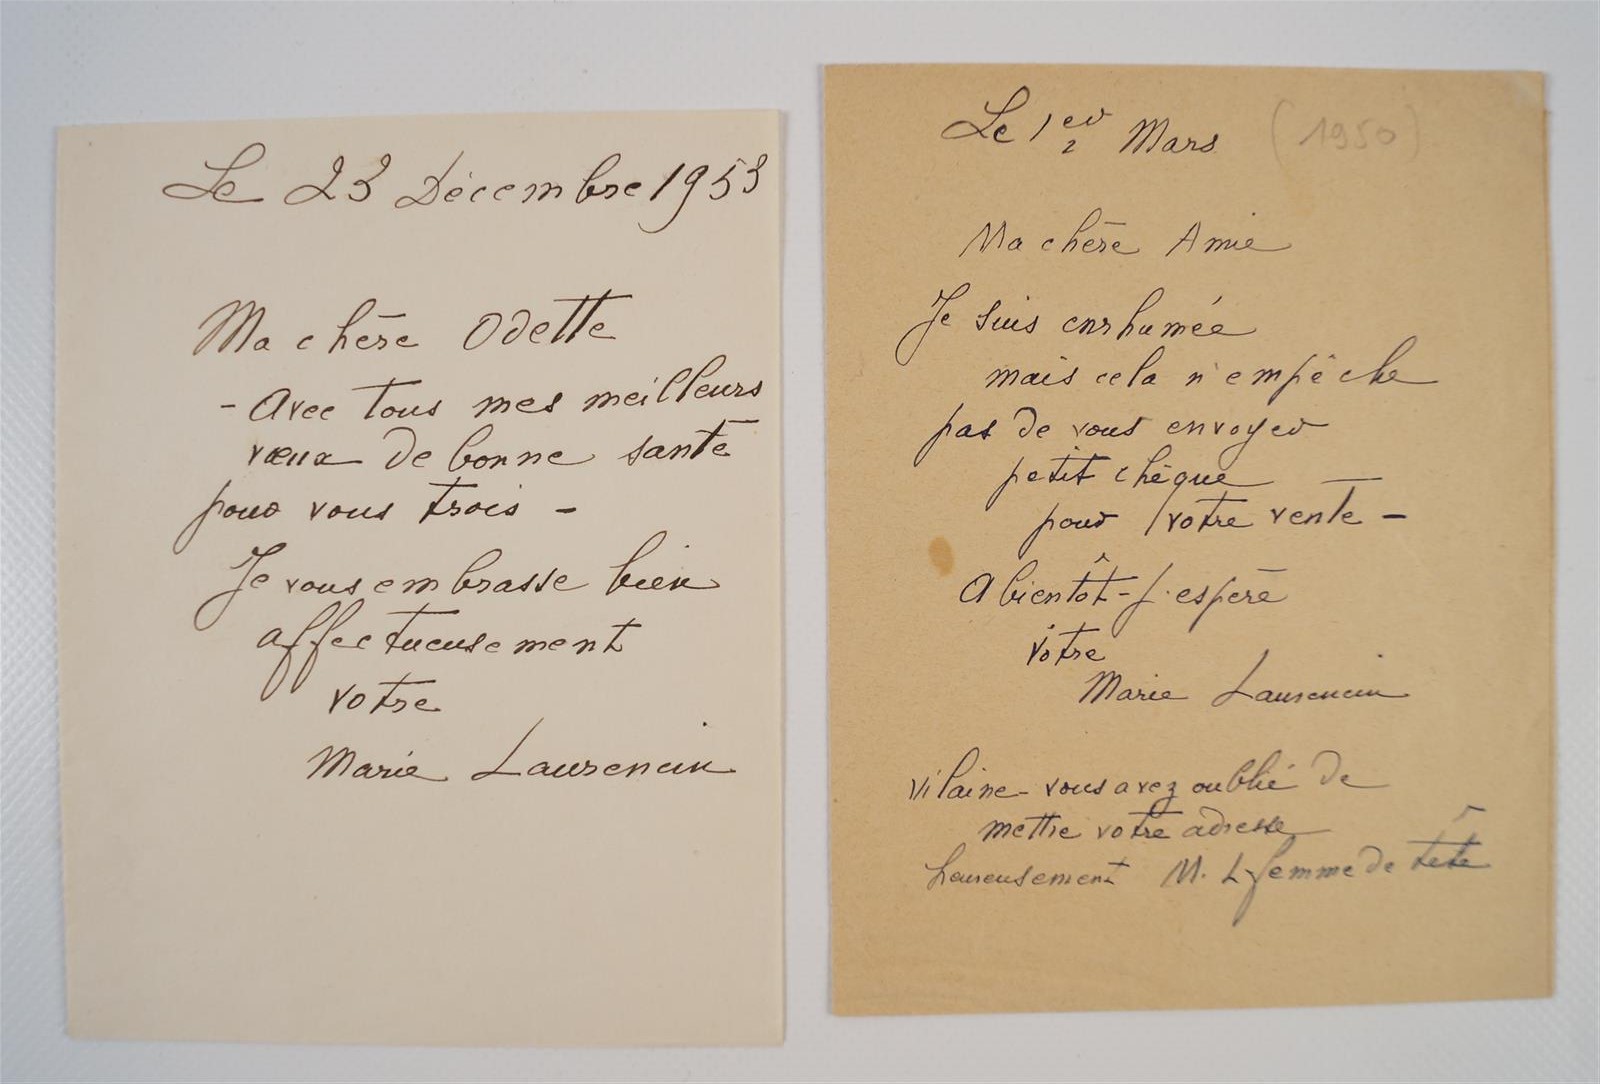 Le 23 Décembre 1953
Ma chère Odette
- Avec tous mes meilleurs
vœux de bonne santé
pour vous trois -
Je vous embrasse bien
affectueusement
votre
Marie Laurencin
Le 1er Mars (1950)
2
Ma chère Amie
Je suis enrhumée
mais cela n'empêche
pas de vous envoyer
petit chèque
pour votre vente -
A bientôt - j'espère
votre
Marie Laurencin
Vilaine - vous avez oublié de
mettre votre adresse
heureusement M. L femme de tête